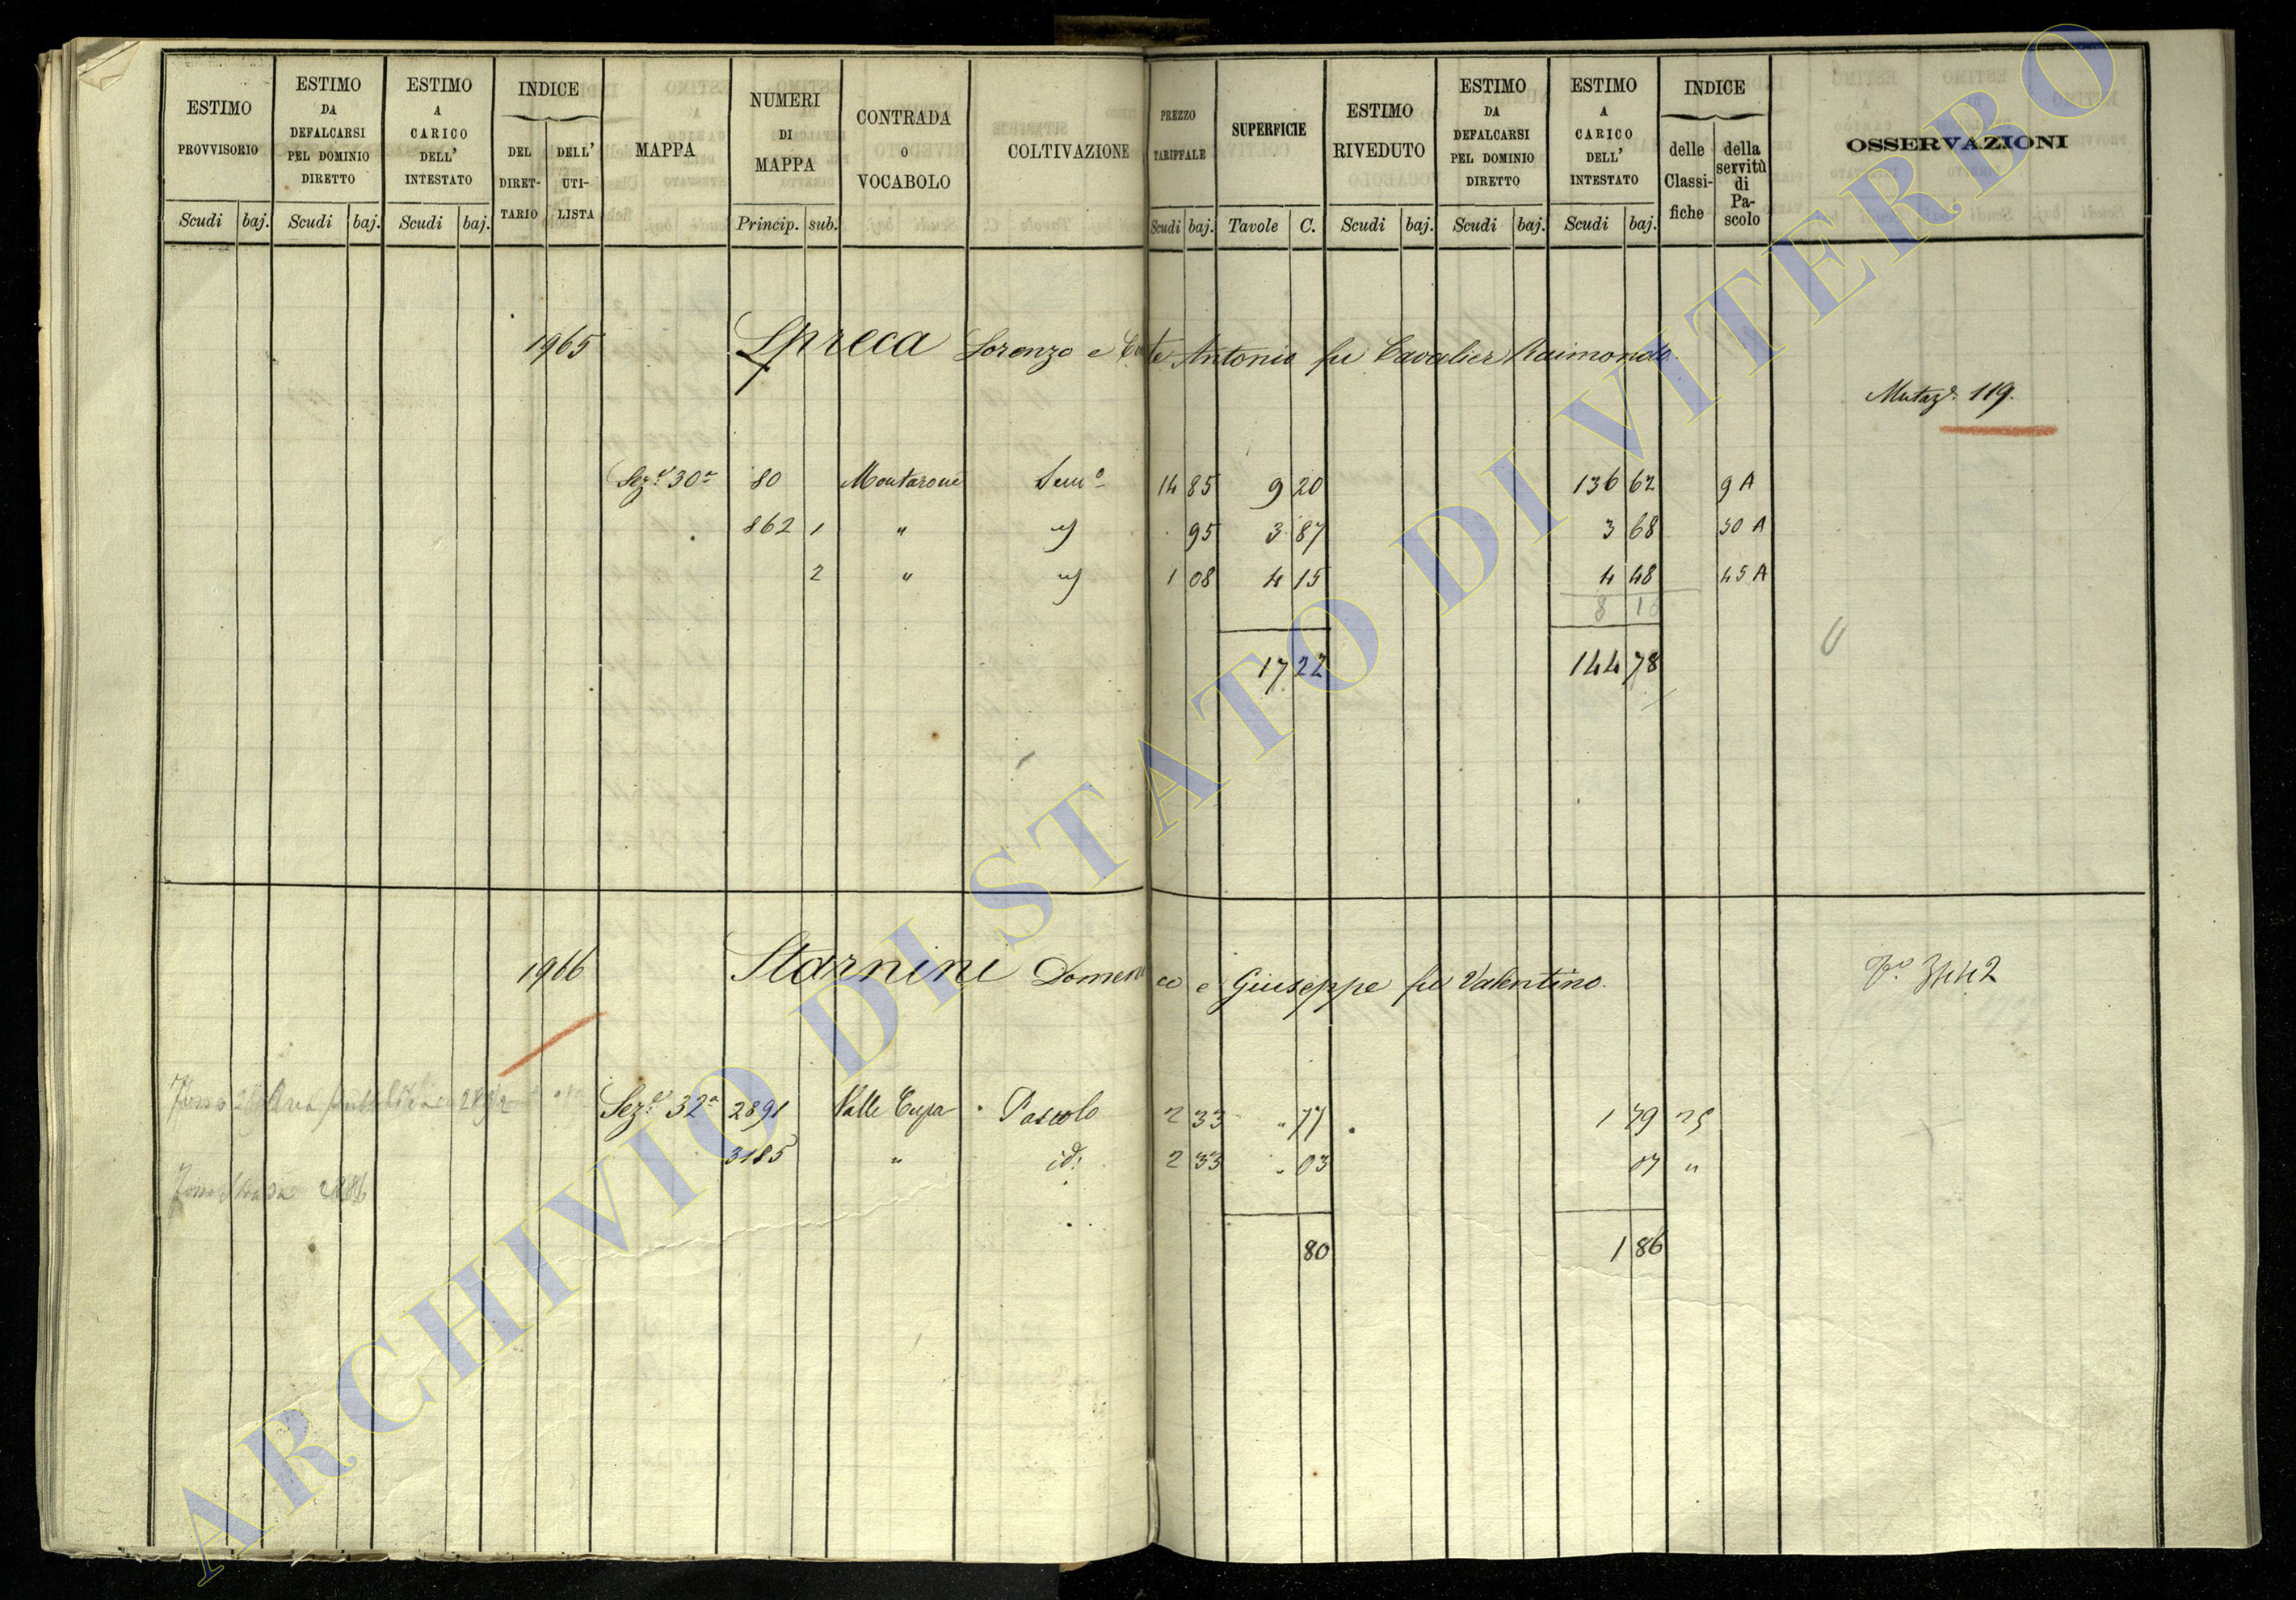 ESTIMO PROVVISORIO
ESTIMO DA DEFALCARSI PEL DOMINIO DIRETTO
ESTIMO A CARICO DELL' INTESTATO
INDICE
DEL DIRET-TARIO
DELL' UTI-LISTA
MAPPA
NUMERI DI MAPPA
CONTRADA O VOCABOLO
COLTIVAZIONE
PREZZO TARIFFALE
SUPERFICIE
ESTIMO RIVEDUTO
ESTIMO DA DEFALCARSI PEL DOMINIO DIRETTO
ESTIMO A CARICO DELL' INTESTATO
INDICE
delle Classi-fiche
della servitù di Pa-scolo
OSSERVAZIONI
Scudi baj. Scudi baj. Scudi baj. Princip. sub. Scudi baj. Tavole C. Scudi baj. Scudi baj. Scudi baj.
1965 Spreca Lorenzo e Antonio fu Cavalier Raimondo
Mutaz.e 119.
Sez.e 30a 80 Montarone Sem.o 14 85 9 20 136 62 9 A
862 1 " 95 3 87 3 68 30 A
2 " 1 08 4 15 4 48 45 A
8 16
17 22 144 78
1966 Starnini Domenico e Giuseppe fu Valentino.
3442
Sez.e 32a 2891 Valle Cupa Pascolo 2 33 " 77 1 79 25
3185 " id: 2 33 " 03 07 "
80 1 86
ARCHIVIO DI STATO DI VITERBO